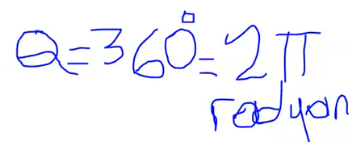 Q=360°=2π
radyan